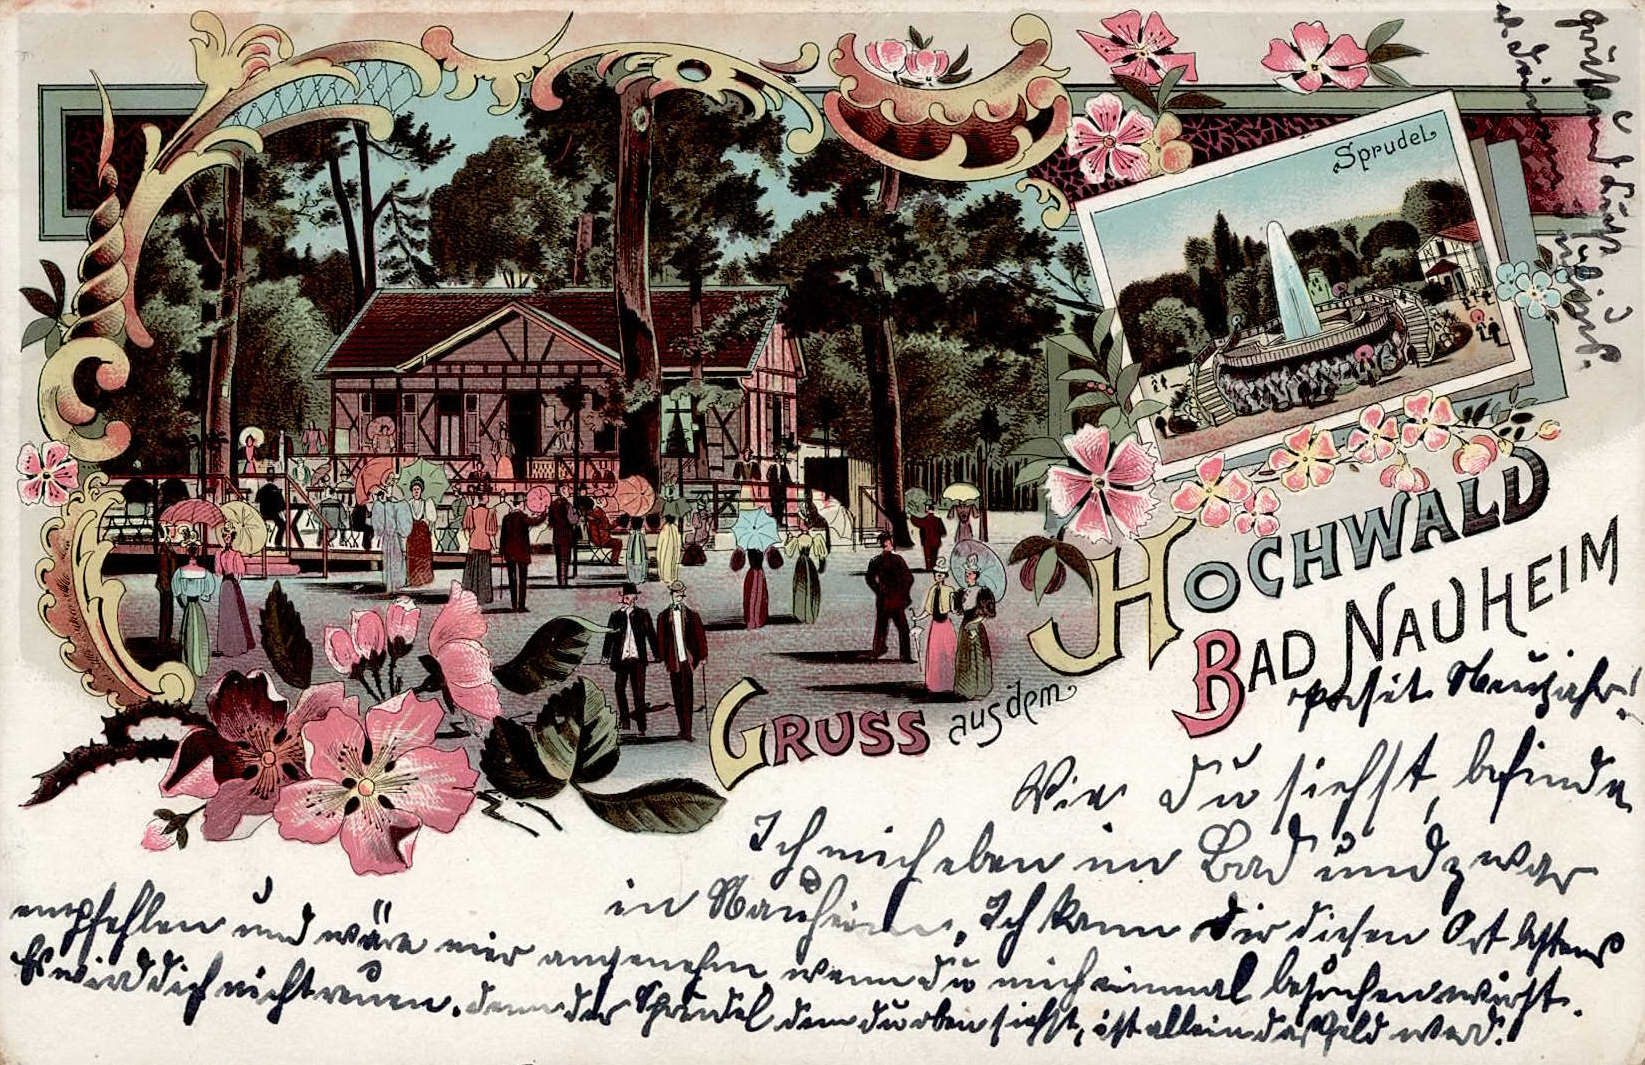 Sprudel
GRUSS aus dem HOCHWALD
BAD NAUHEIM
prosit Neujahr!
Wie du siehst, befinde
Ich mich eben im Bad und zwar
in Nauheim. Ich kann dir diesen Ort bestens
empfehlen und wäre mir angenehm wenn du mich einmal besuchen wirst.
Es wird dich nicht reuen. denn der Sprudel den du oben siehst, ist allein das Geld werd.